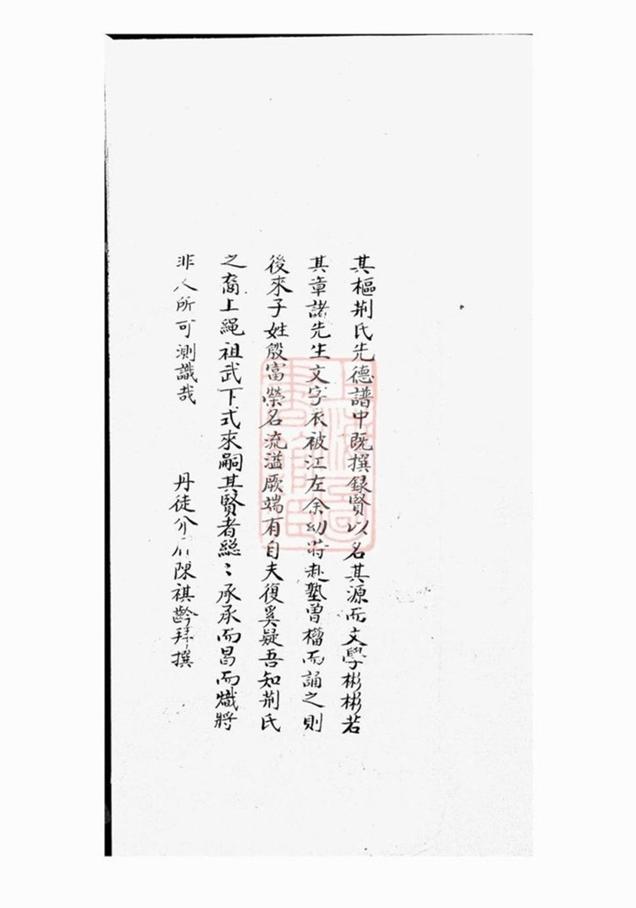 其樞荆氏先德譜中既撰録賢以名其源而文學彬彬若
其章諸先生文字衣被江左余幼時赴塾曽櫂而誦之則
後來子姓殷富榮名流溢厥端有自夫復奚疑吾知荆氏
之裔上繩祖武下式來嗣其賢者緦〻承承而昌而熾將
非人所可測識哉
丹徒介石陳祺齡拜撰